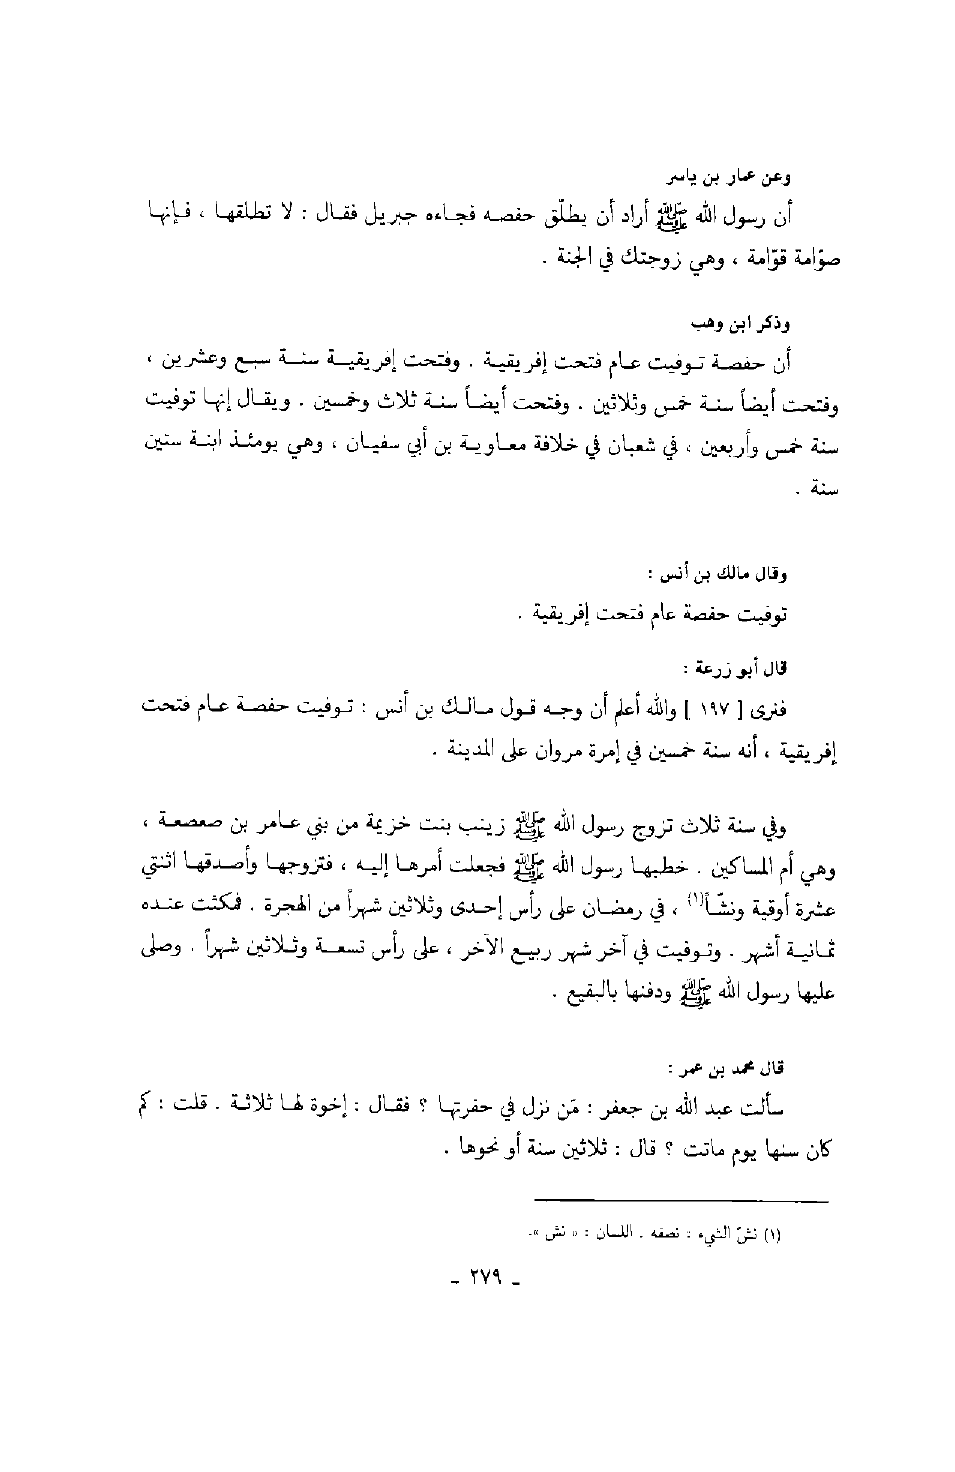 وعن عمار بن ياسر
أن رسول الله ﷺ أراد أن يطلّق حفصه فجاءه جبريل فقال : لا تطلقها ، فإنها
صوّامة قوّامة ، وهي زوجتك في الجنة .
وذكر ابن وهب
أن حفصة توفيت عام فتحت إفريقية . وفتحت إفريقية سنة سبع وعشرين ،
وفتحت أيضاً سنة خمس وثلاثين . وفتحت أيضاً سنة ثلاث وخمسين . ويقال إنها توفيت
سنة خمس وأربعين ، في شعبان في خلافة معاوية بن أبي سفيان ، وهي يومئذ ابنة ستين
سنة .
وقال مالك بن أنس :
توفيت حفصة عام فتحت إفريقية .
قال أبو زرعة :
فنرى [ ١٩٧ ] والله أعلم أن وجه قول مالك بن أنس : توفيت حفصة عام فتحت
إفريقية ، أنه سنة خمسين في إمرة مروان على المدينة .
وفي سنة ثلاث تزوج رسول الله ﷺ زينب بنت خزيمة من بني عامر بن صعصعة ،
وهي أم المساكين . خطبها رسول الله ﷺ فجعلت أمرها إليه ، فتزوجها وأصدقها اثنتي
عشرة أوقية ونشّاً(١) ، في رمضان على رأس إحدى وثلاثين شهراً من الهجرة . فمكثت عنده
ثمانية أشهر . وتوفيت في آخر شهر ربيع الآخر ، على رأس تسعة وثلاثين شهراً . وصلى
عليها رسول الله ﷺ ودفنها بالبقيع .
قال محمد بن عمر :
سألت عبد الله بن جعفر : مَن نزل في حفرتها ؟ فقال : إخوة لها ثلاثة . قلت : كم
كان سنها يوم ماتت ؟ قال : ثلاثين سنة أو نحوها .
(١) نشّ الشيء : نصفه . اللسان : « نش ».
- ٢٧٩ -